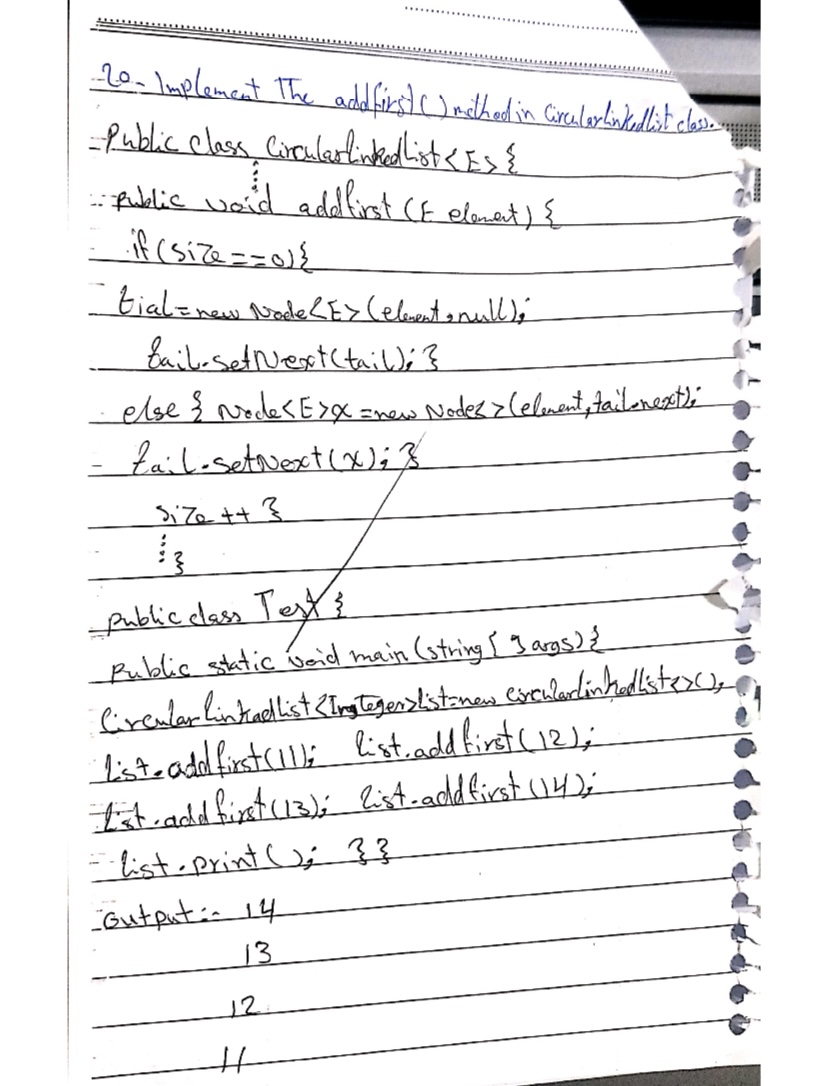 20- Implement The addfirst() method in Circularlinkedlist class.
Public class CircularlinkedList<E> {
public void addfirst (E element) {
if (size==0){
tial=new Node<E>(element,null);
tail.setNext(tail); }
else { Node<E>x =new Node<>(element,tail.next);
tail.setNext(x); }
size ++ }
}
public class Test {
public static void main (string[ ] args) {
Circularlinkedlist<Integer>list=new circularlinkedlist<>();
list.addfirst(11); list.addfirst(12);
list.addfirst(13); list.addfirst(14);
list.print(); }}
output:- 14
13
12
11